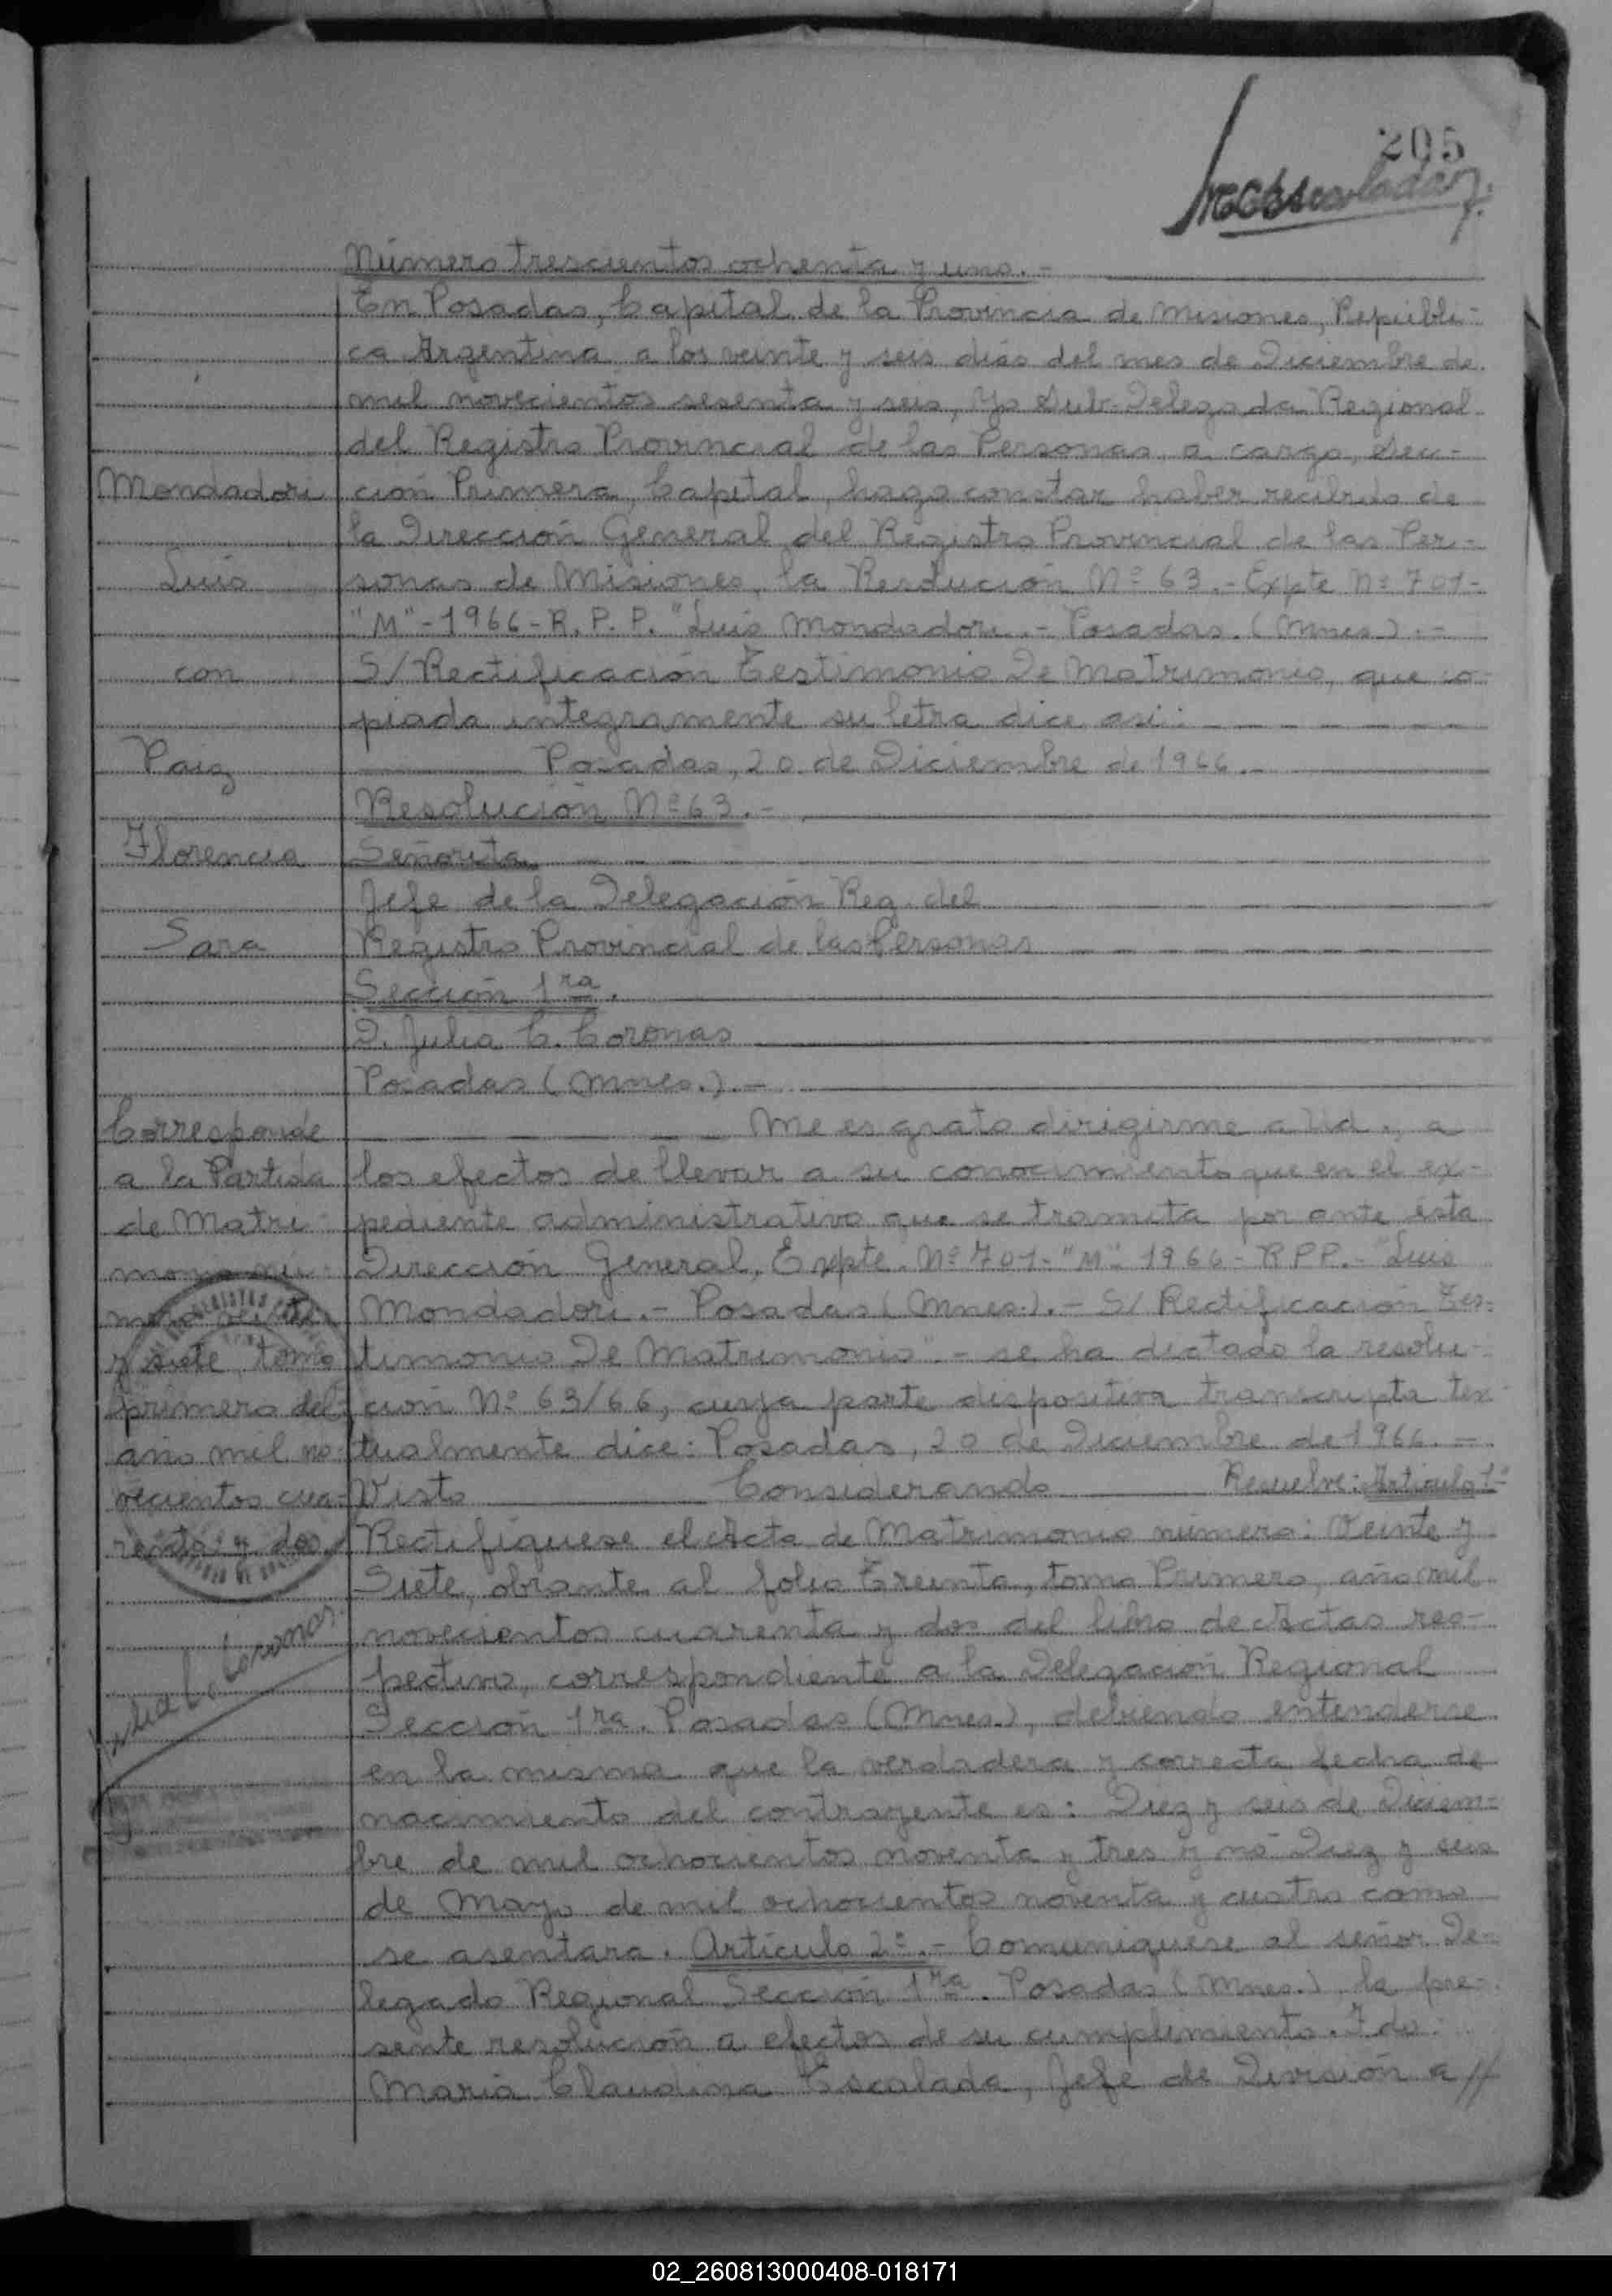 205
Número trescientos ochenta y uno.-
En Posadas, Capital de la Provincia de Misiones, Repúbli-
ca Argentina a los veinte y seis días del mes de Diciembre de
mil novecientos sesenta y seis, Yo Sub-Delegada Regional
del Registro Provincial de las Personas, a cargo, Sec-
ción Primera, Capital, hago constar haber recibido de
la Dirección General del Registro Provincial de las Per-
sonas de Misiones, la Resolución Nº 63.- Expte Nº 701-
"M"-1966-R.P.P. "Luis Mondadori.- Posadas. (Mnes.).-
S/Rectificación Testimonio De Matrimonio, que co-
piada integramente su letra dice así:
Posadas, 20 de Diciembre de 1966.-
Resolución Nº 63.-
Señorita
Jefe de la Delegación Reg. del
Registro Provincial de las Personas
Sección 1ra.
D. Julia C. Coronas
Posadas (Mnes.).-
Me es grato dirigirme a Ud., a
los efectos de llevar a su conocimiento que en el ex-
pediente administrativo que se tramita por ante ésta
Dirección General, Expte. Nº 701-"M"-1966-RPP.-"Luis
Mondadori.- Posadas (Mnes.).- S/Rectificación Tes-
timonio De Matrimonio"- se ha dictado la resolu-
ción Nº 63/66, cuya parte dispositiva transcripta tex-
tualmente dice: Posadas, 20 de Diciembre de 1966.-
Visto Considerando Resuelve: Artículo 1º-
Rectifíquese el Acta de Matrimonio número: Veinte y
Siete, obrante al folio Treinta, tomo Primero, año mil
novecientos cuarenta y dos del libro de Actas res-
pectivo, correspondiente a la Delegación Regional
Sección 1ra. Posadas (Mnes.), debiendo entenderse
en la misma que la verdadera y correcta fecha de
nacimiento del contrayente es: Diez y seis de Diciem-
bre de mil ochocientos noventa y tres y no Diez y seis
de Mayo de mil ochocientos noventa y cuatro como
se asentara. Artículo 2º.- Comuníquese al señor De-
legado Regional Sección 1ra. Posadas (Mnes.) la pre-
sente resolución a efectos de su cumplimiento. Fdo:
María Claudina Escalada, Jefe de División a//
Mondadori
Luis
con
Paiz
Florencia
Sara
Corresponde
a la Partida
de Matri-
monio nú-
mero veinte
y siete, tomo
primero del
año mil no-
vecientos cua-
renta y dos
Julia C. Coronas
02_260813000408-018171